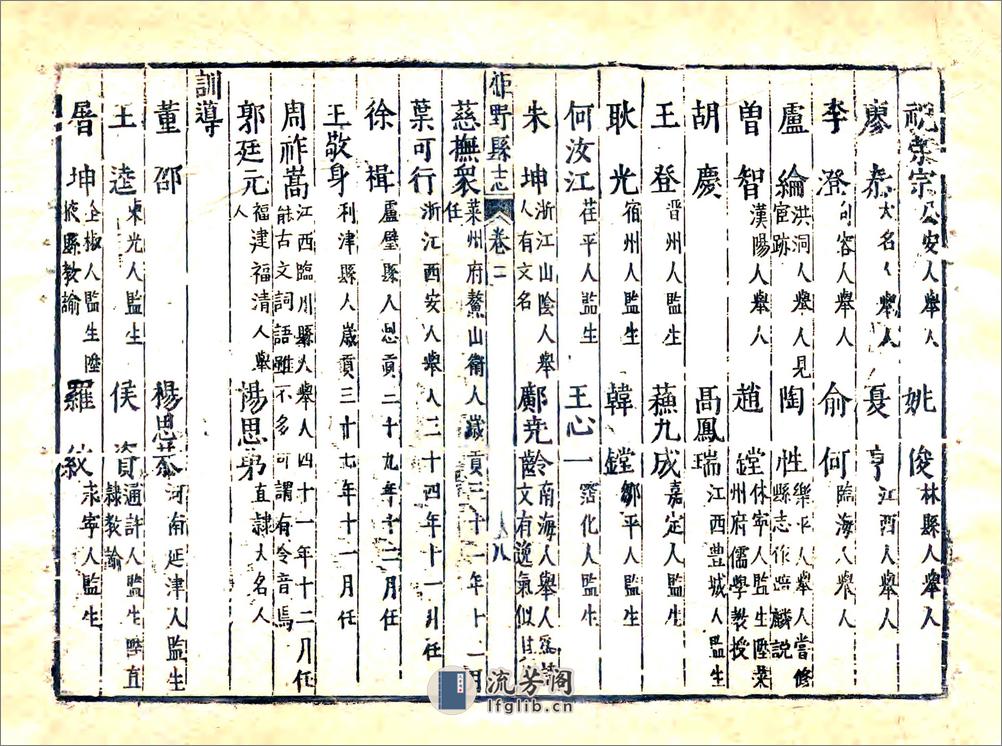 祝崇宗 公安人舉人 姚俊 林縣人舉人
廖泰 大名人舉人 夏亨 江西人舉人
李澄 句容人舉人 俞何 臨海人舉人
盧綸 洪洞人舉人見宦跡 陶性 樂平人舉人嘗修縣志作瑞麟說
曽智 漢陽人舉人 趙鏜 休寧人監生陞萊州府儒學教授
胡慶 高鳳瑞 江西豊城人監生
王登 晋州人監生 蘓九成 嘉定人監生
耿光 宿州人監生 韓鏜 鄒平人監生
何汝江 茌平人監生 王心一 窑化人監生
朱坤 浙江山陰人舉人有文名 鄺尭齡 南海人舉人文有逸氣似
鉅野縣志 卷二 八
慈撫衆 萊州府鰲山衛人歲貢三十二年十一月任
葉可行 浙江西安人舉人三十四年十一月任
徐楫 盧壁縣人恩貢二十九年十二月任
王敬身 利津縣人歲貢三十七年十一月任
周祚嵩 江西臨川縣人舉人四十一年十二月任能古文詞語雖不多可謂有令音焉
郭廷元 福建福清人舉人 楊思勇 直隷大名人
訓導
董邵 楊思恭 河南延津人監生
王逵 東光人監生 侯資 通許人監生陞直隷教諭
屠坤 全椒人監生陞掖縣教諭 羅紋 永寧人監生
流芳阁
lfglib.cn